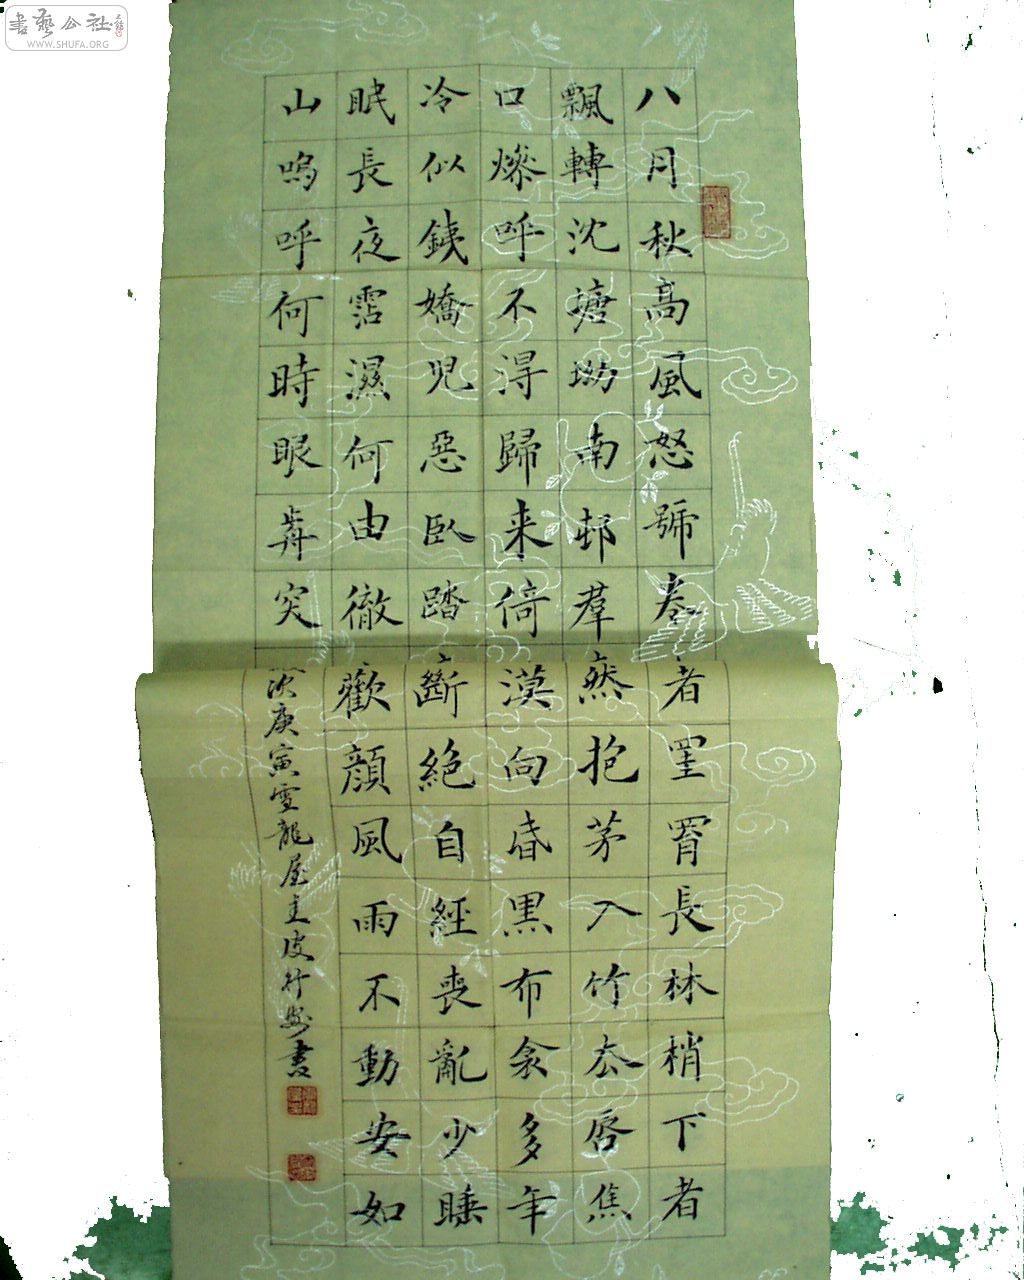 書藝公社
WWW.SHUFA.ORG
八月秋高風怒號卷者罣罥長林梢下者
飄轉沈塘坳南邨羣然抱茅入竹去唇焦
口燥呼不得歸来倚漠向昏黑布衾多年
冷似鐵嬌兒惡臥踏斷絕自經喪亂少睡
眠長夜霑濕何由徹歡顔風雨不動安如
山嗚呼何時眼歬突次庚寅雪龍屋主皮書